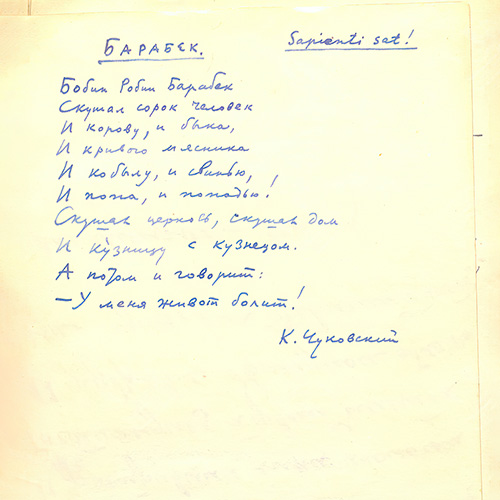 БАРАБЕК. Sapienti sat!
Бобин Робин Барабек
Скушал сорок человек
И корову, и быка,
И кривого мясника
И кобылу, и свинью,
И попа, и попадью!
Скушал церковь, скушал дом
И кузницу с кузнецом.
А потом и говорит:
— У меня живот болит!
К. Чуковский